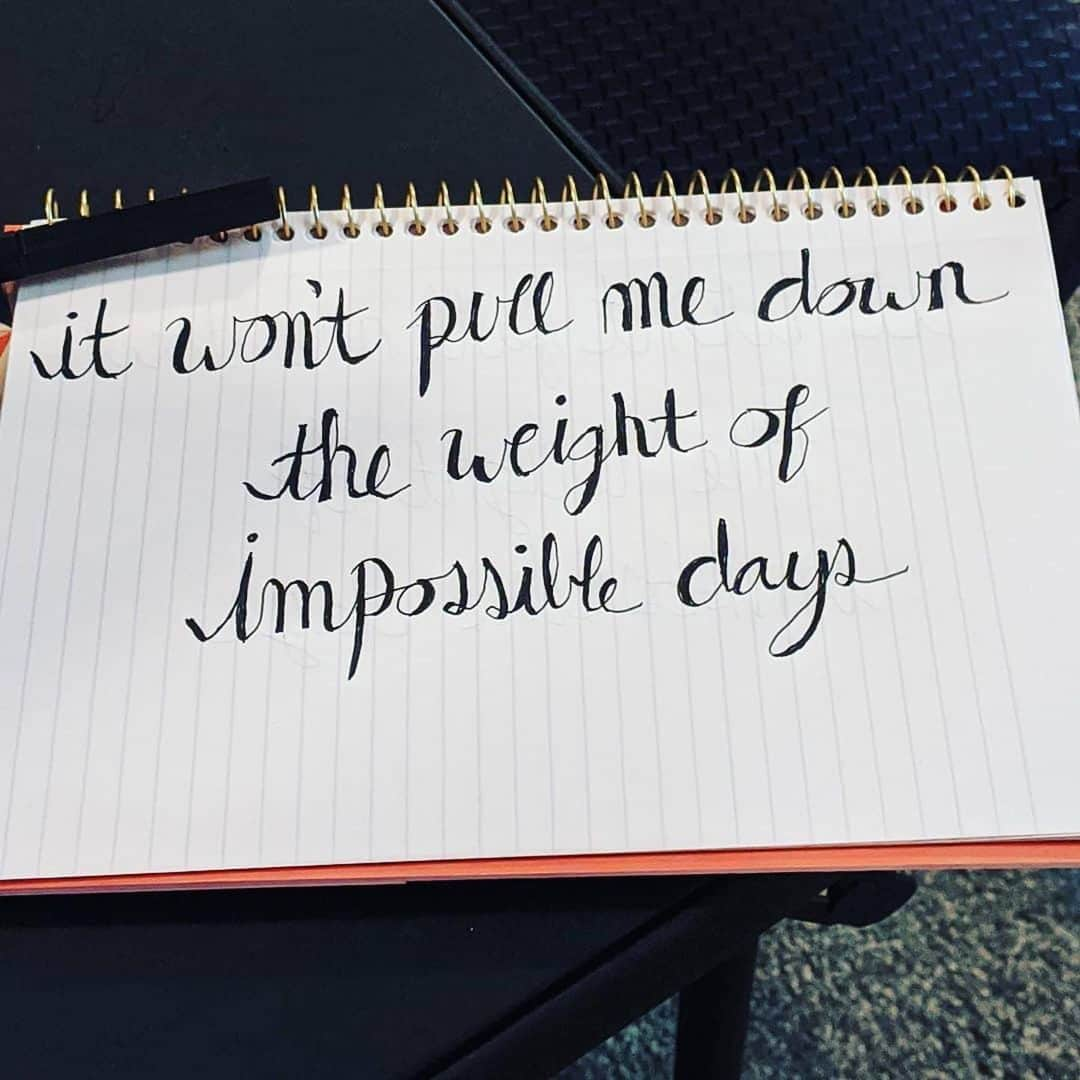 it won't pull me down
the weight of
impossible days